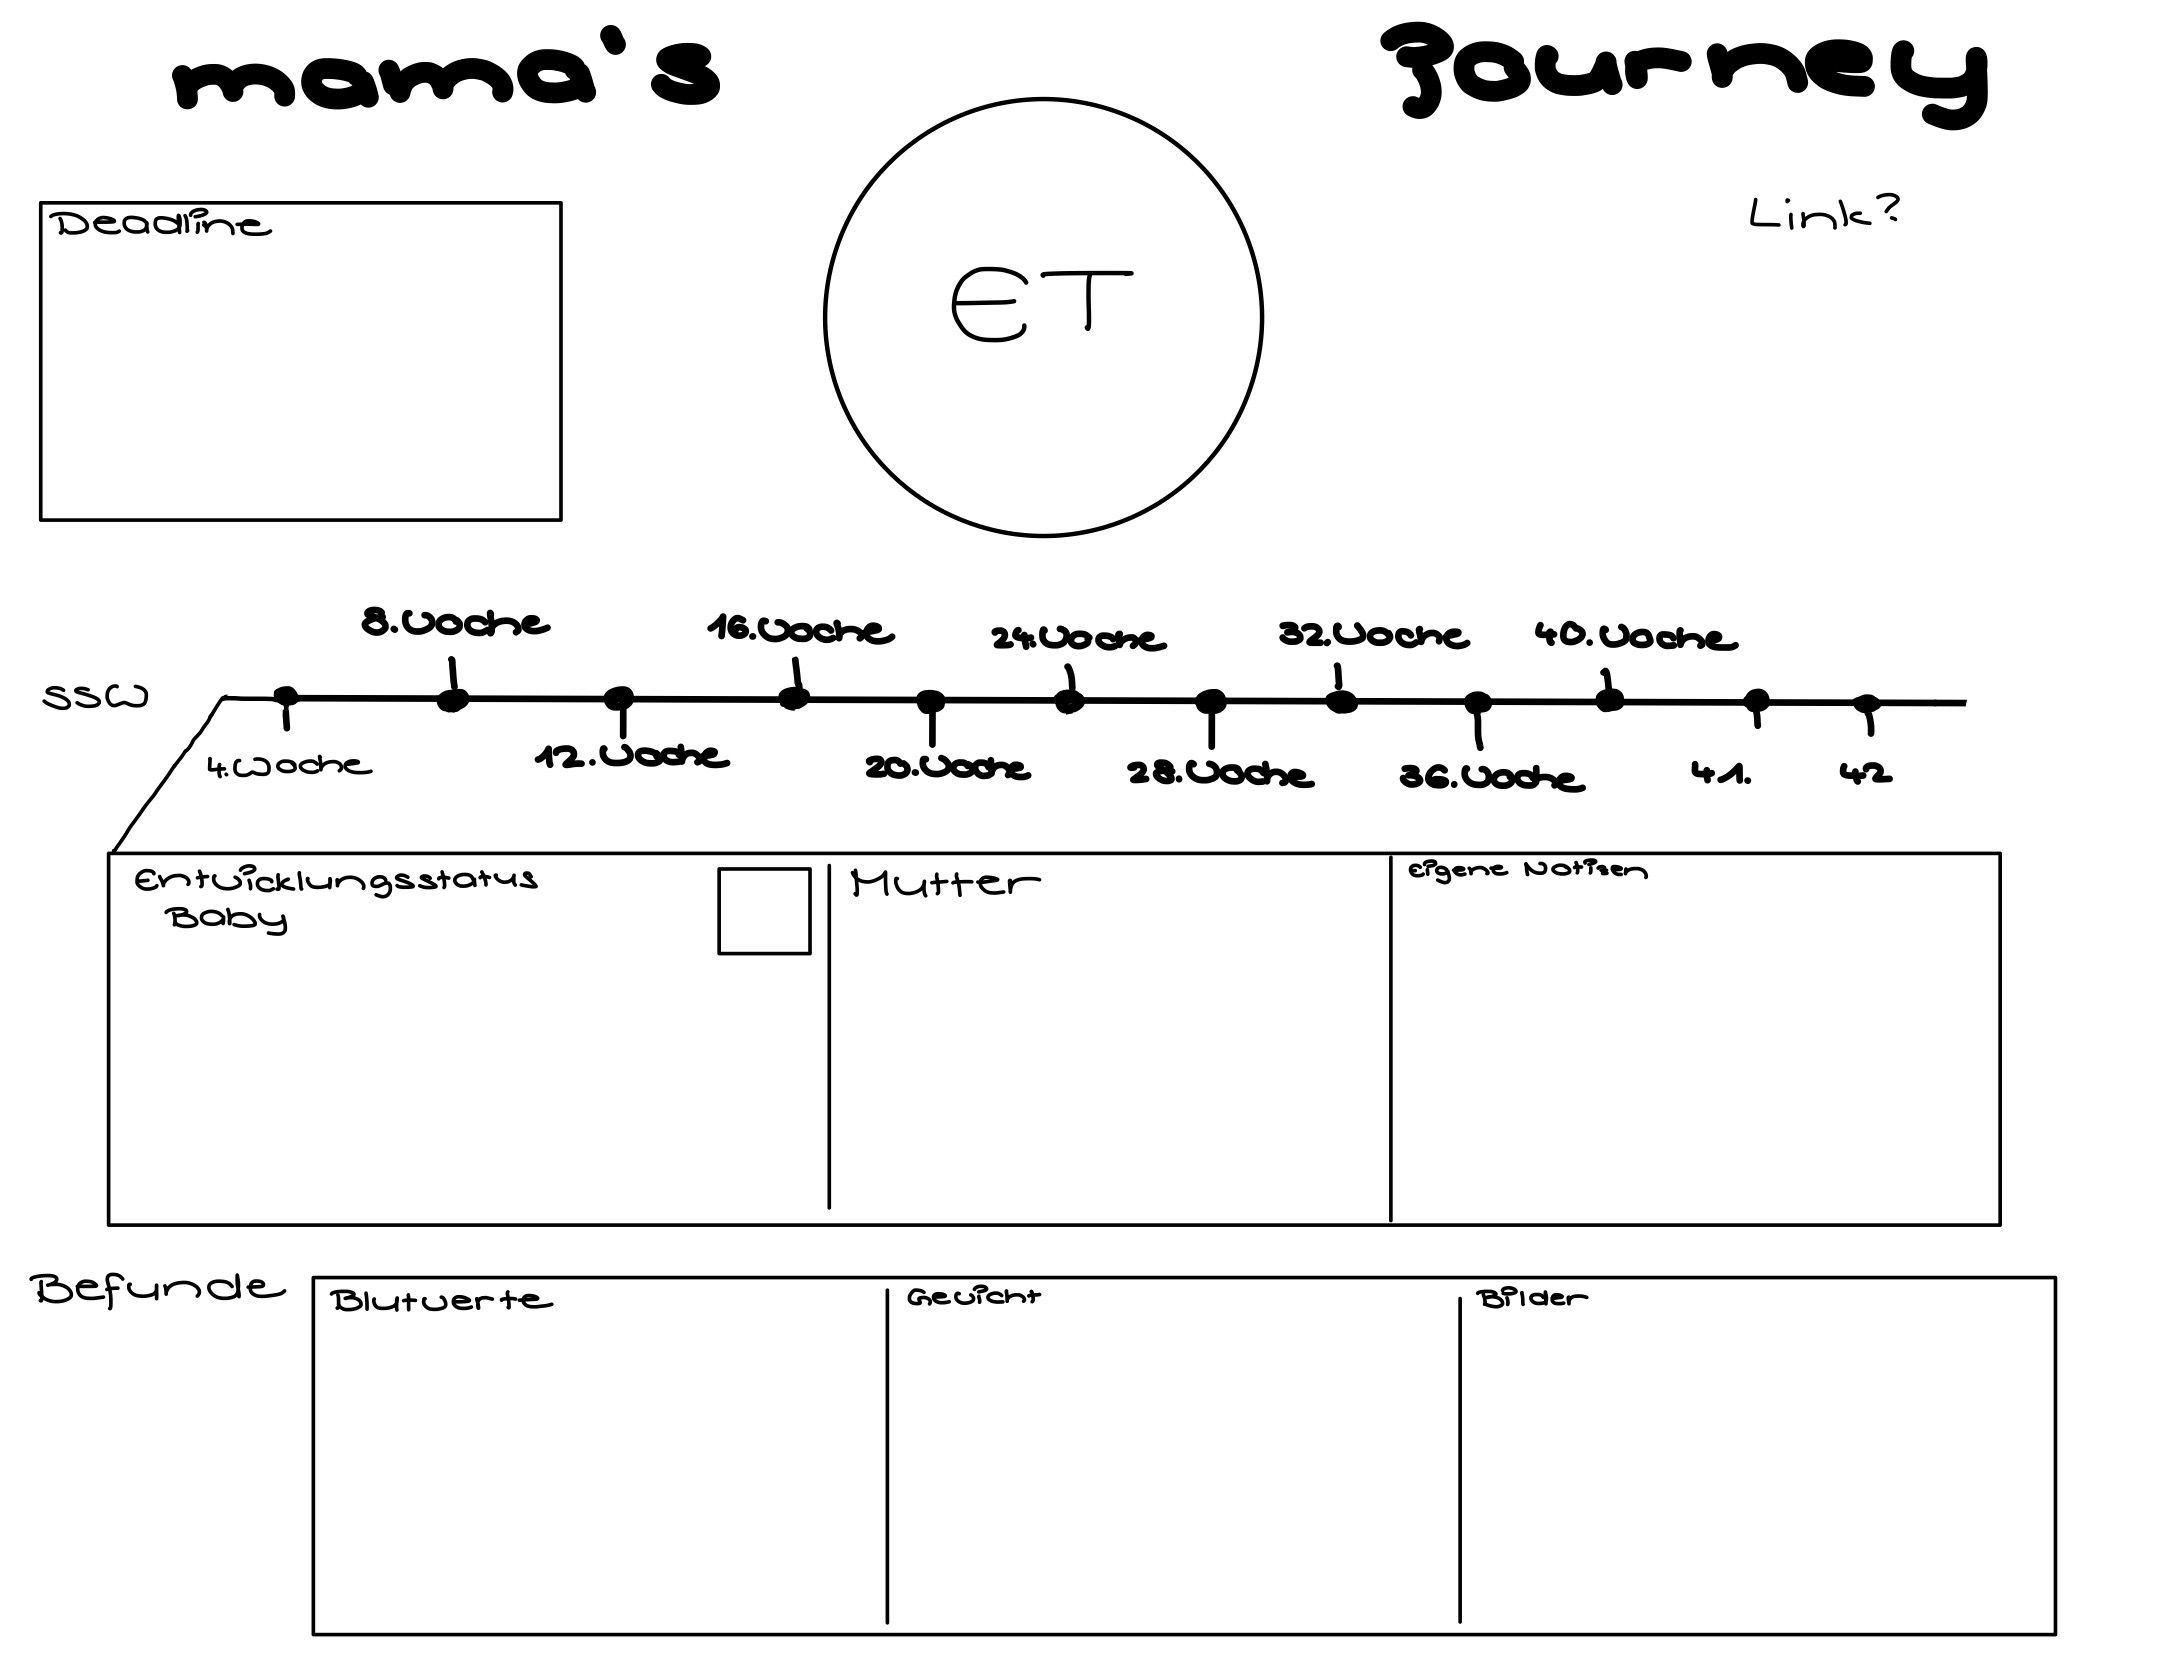 mama's Journey
Deadline
ET
Link?
8.Woche
16.Woche
24.Woche
32.Woche
40.Woche
SSW
4.Woche
12.Woche
20.Woche
28.Woche
36.Woche
41.
42
Entwicklungsstatus
Baby
Mutter
Eigene Notizen
Befunde
Blutwerte
Gewicht
Bilder